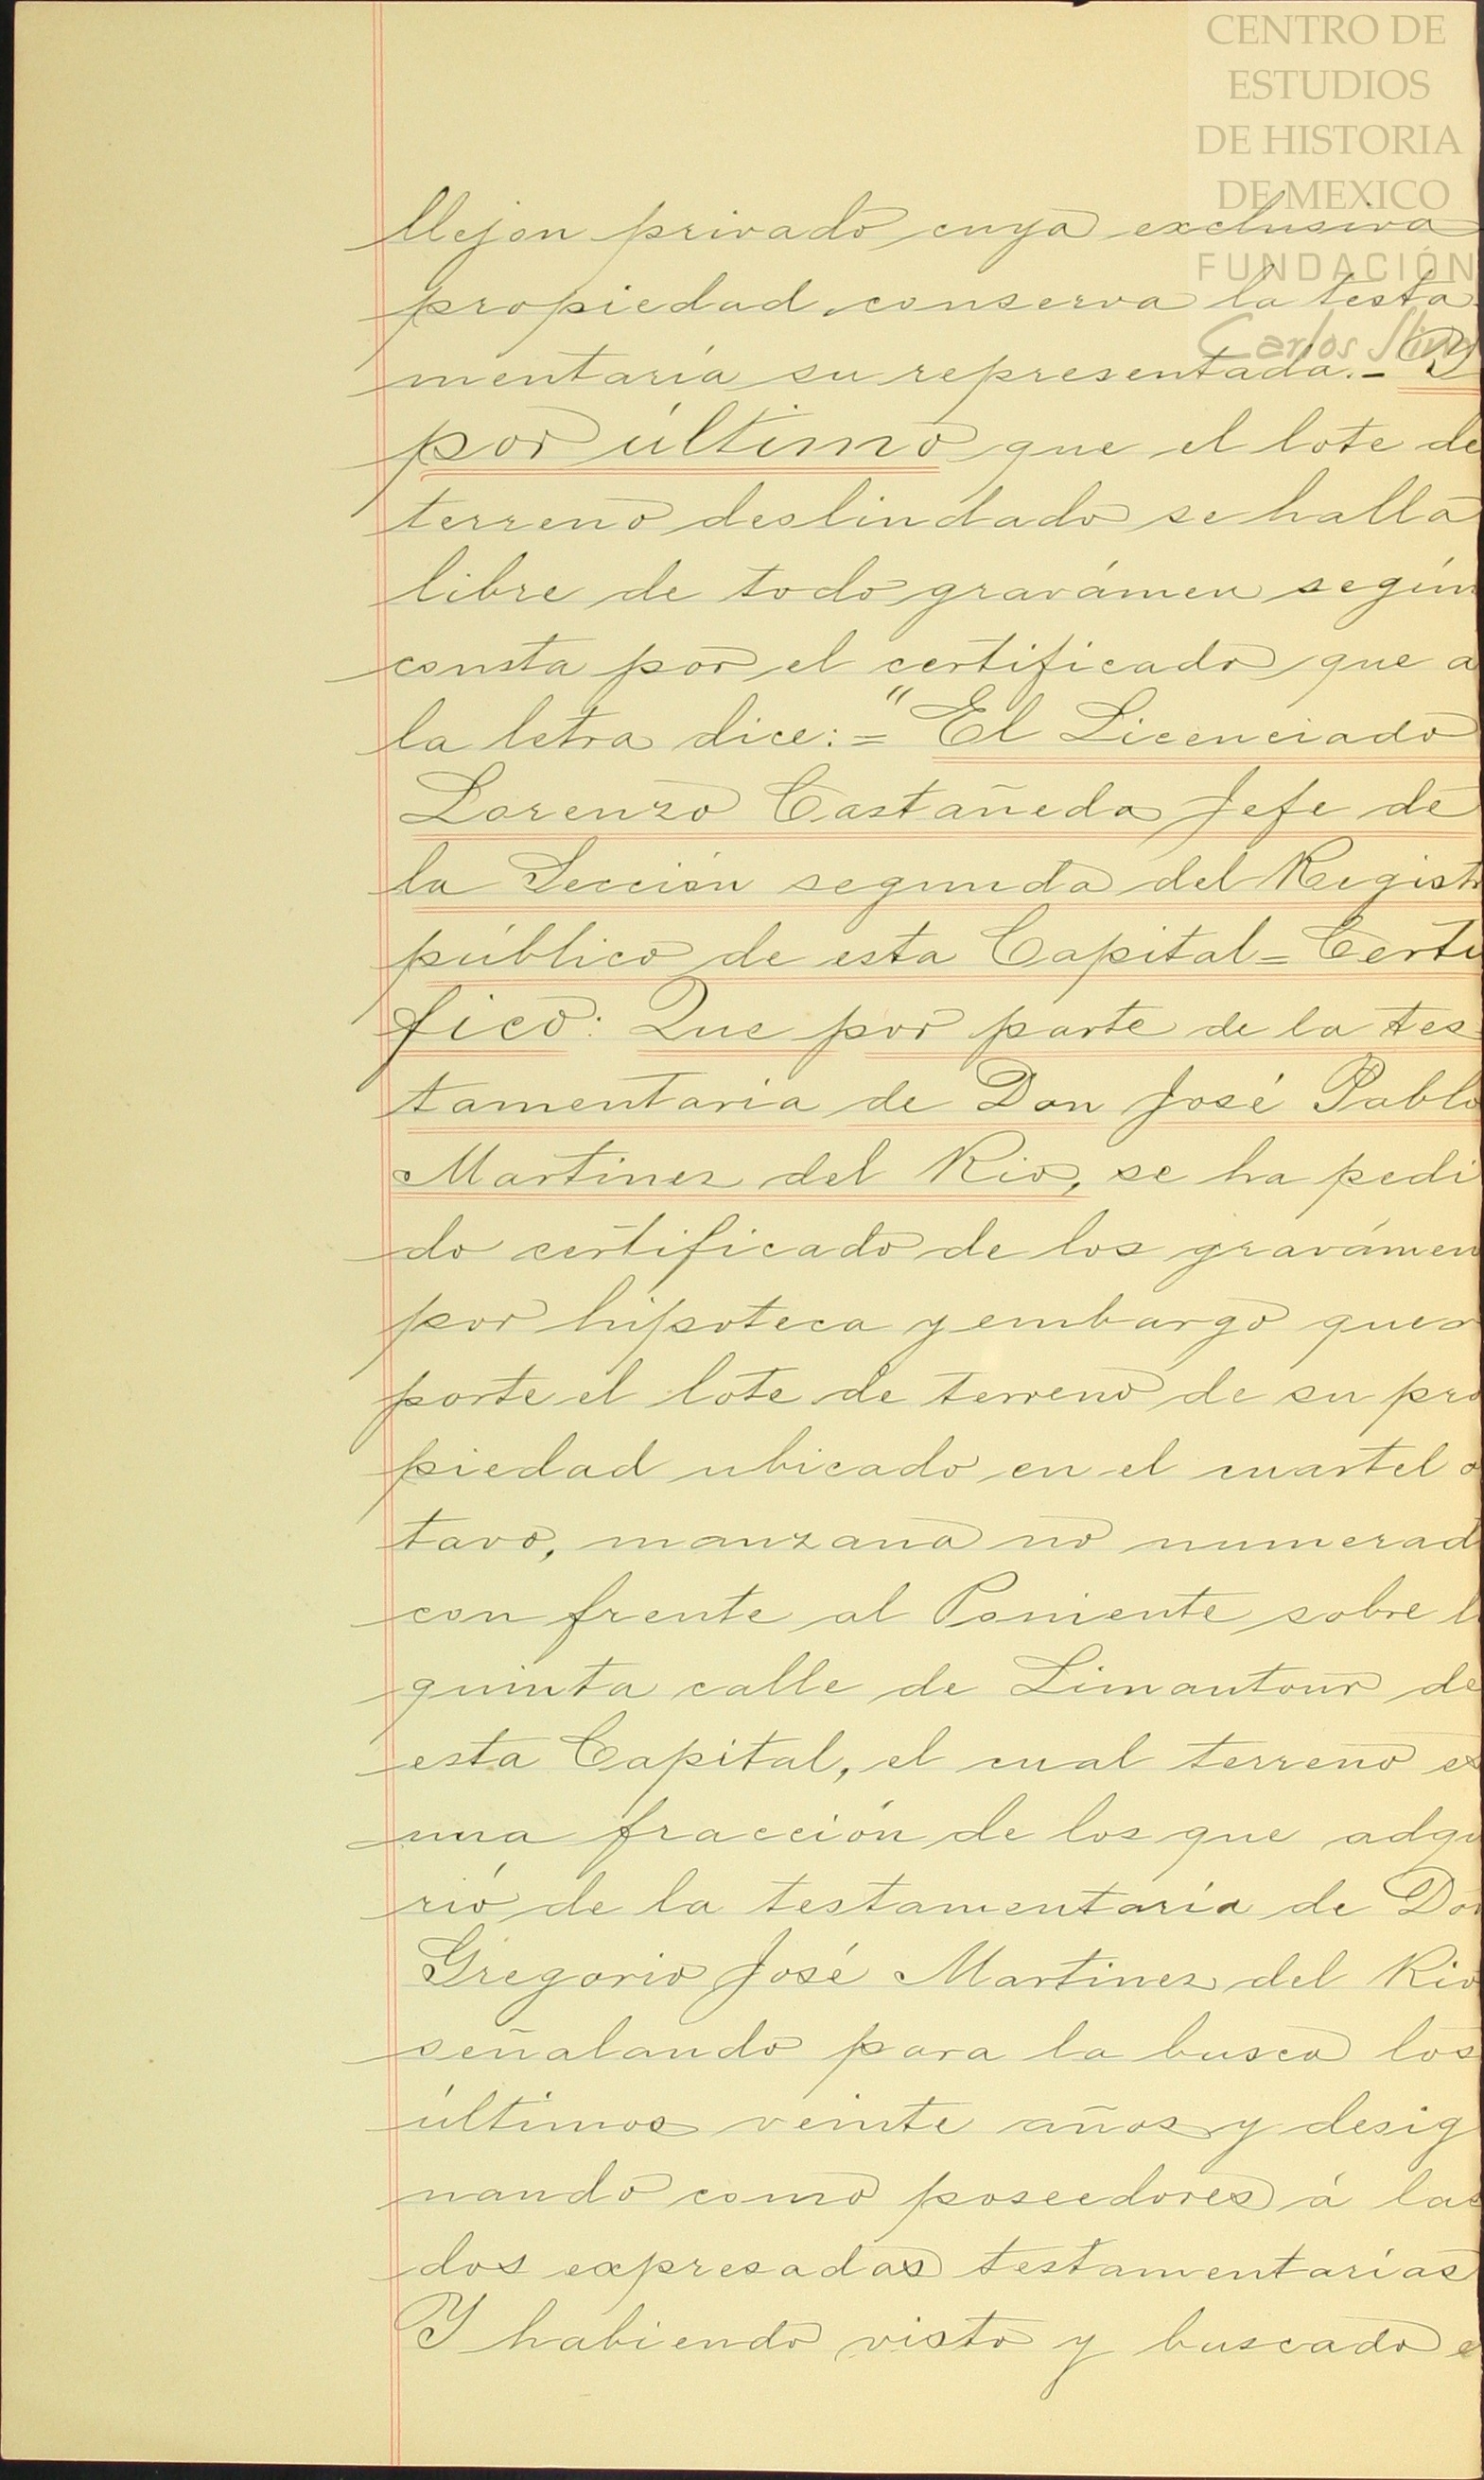 CENTRO DE
ESTUDIOS
DE HISTORIA
DE MEXICO
FUNDACIÓN
Carlos Slim
llejon privado cuya exclusiva
propiedad conserva la testa
mentaría su representada.- Y
por último que el lote de
terreno deslindado se halla
libre de todo gravámen según
consta por el certificado que a
la letra dice:= "El Licenciado
Lorenzo Castañeda Jefe de
la Sección segunda del Registr
público de esta Capital= Certi
fico: Que por parte de la tes
tamentaria de Don José Pablo
Martinez del Rio, se ha pedi
do certificado de los gravámen
por hipoteca y embargo que
porte el lote de terreno de su pro
piedad ubicado en el cuartel o
tavo, manzana no numerad
con frente al Poniente sobre l
quinta calle de Limantour de
esta Capital, el cual terreno es
una fracción de los que adqu
rió de la testamentaría de Don
Gregorio José Martinez del Rio
señalando para la busca los
últimos veinte años y desig
nando como poseedores á las
dos expresadas testamentarías
Y habiendo visto y buscado e